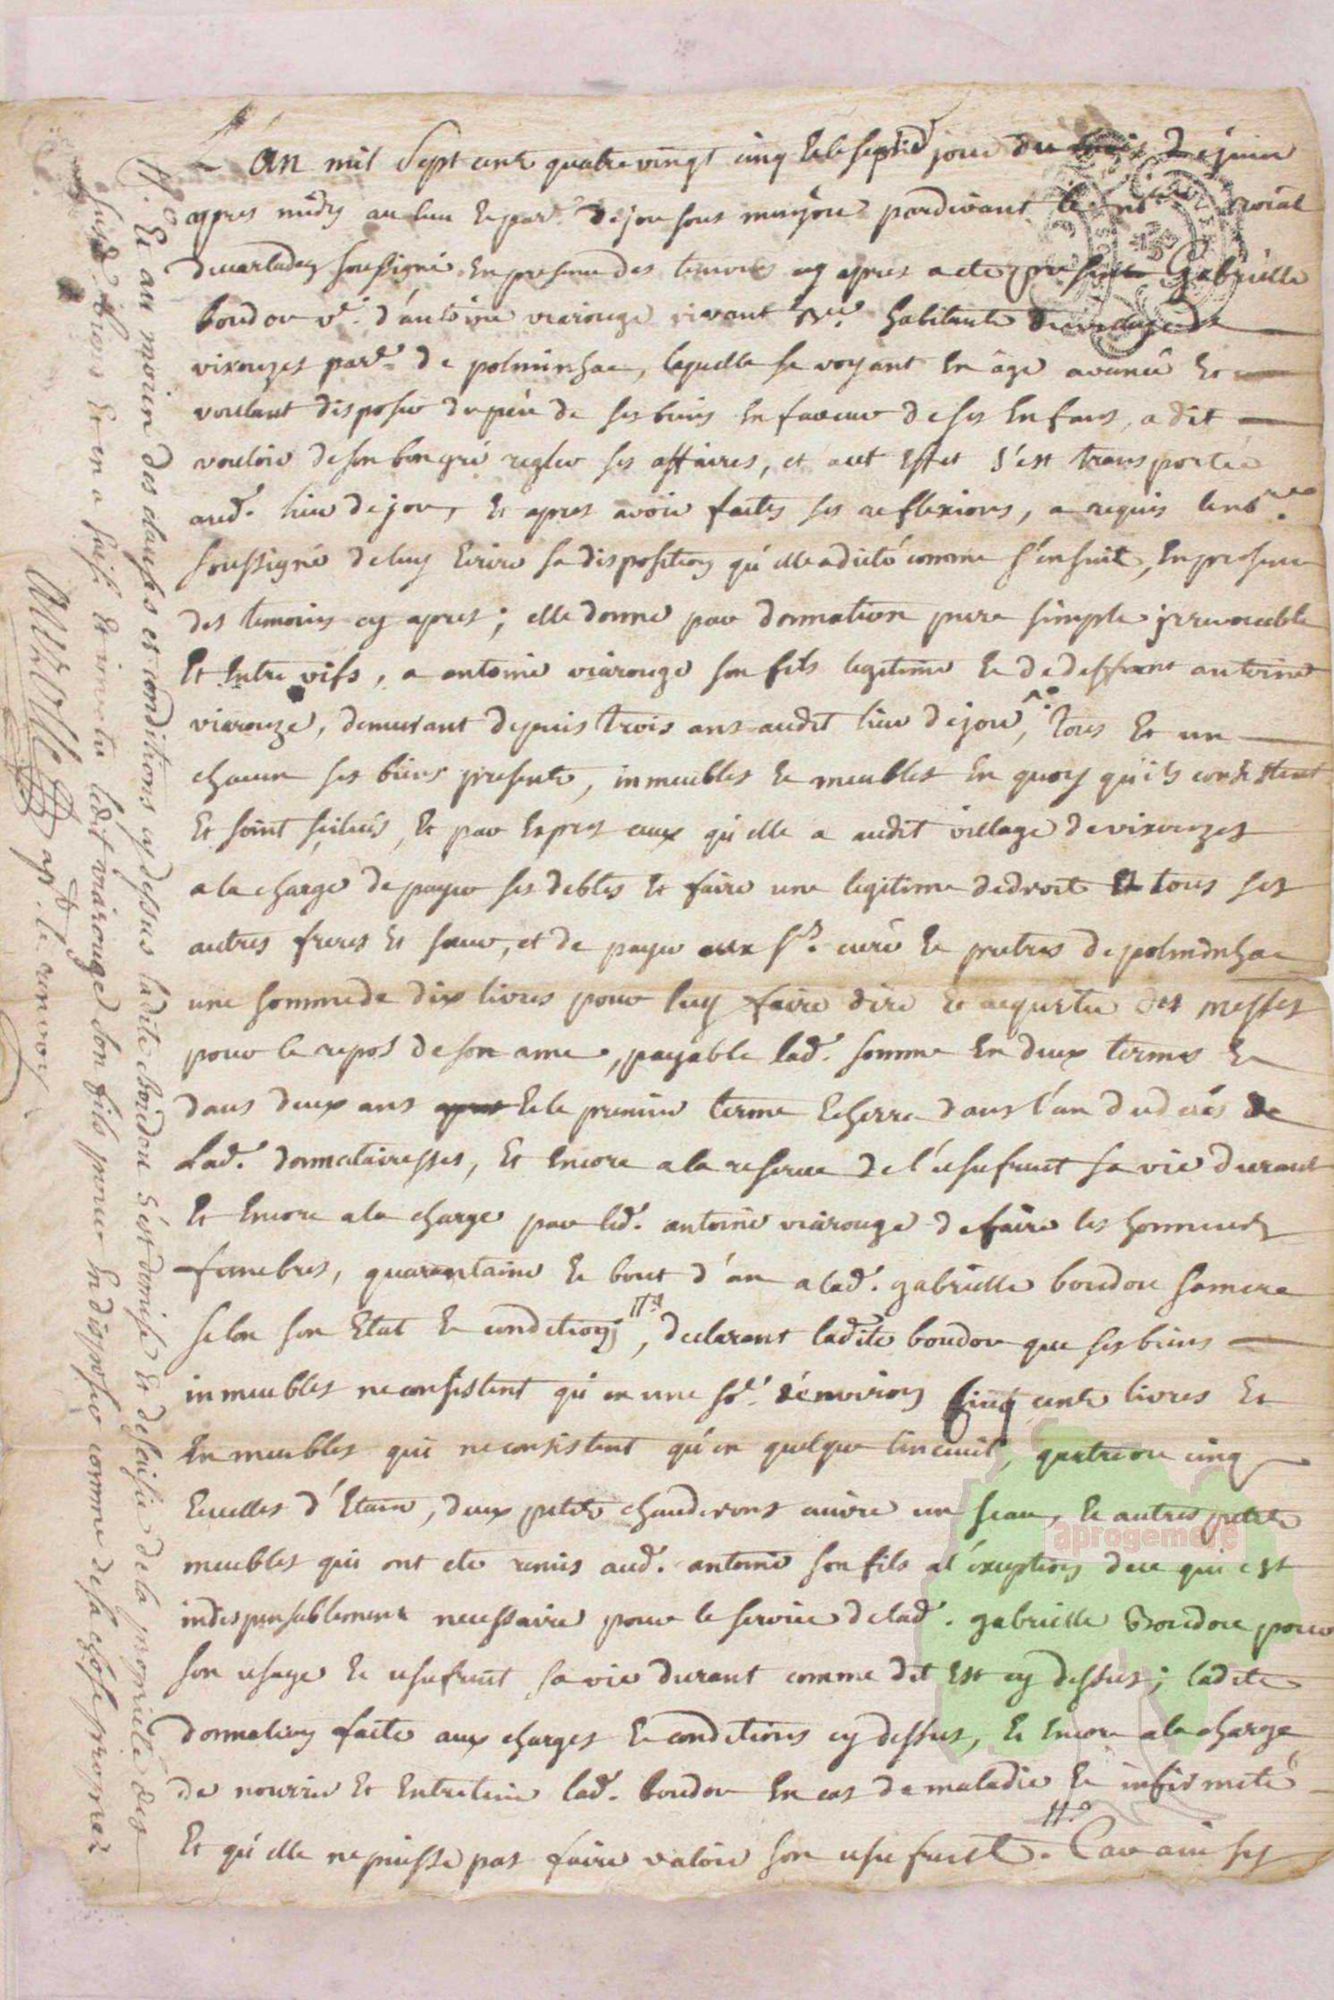 L'an mil Sept cent quatre vingt cinq & le septie jour du mois de juin
apres midy au lieu & par. de jou sous monjou pardevant le no.re roial
de carladez soussigné en presence des temoins cy apres a ete presente Gabrielle
boudou v.e d'antoine viarouge vivant habitante du village de
vixouzes par.e de polminhac, laquelle se voyant en age avancé et
voulant disposer du peu de ses biens en faveur de ses enfans, a dit
vouloir de son bon gré regler ses affaires, et aut effet s'est transportée
aud. lieu de jou, et apres avoir faites ses reflexions, a requis le no.re
soussigné de luy ecrire sa disposition qu'elle a dicté comme s'ensuit, en presence
des temoins cy apres; elle donne par donnation pure simple irrevocable
et entre vifs, a antoine viarouge son fils legitime & de deffunt antoine
viarouge, demeurant depuis trois ans audit lieu de jou, tous et un
chacun ses biens presents, inmeubles & meubles en quoy qu'ils consistent
et soint scitués, et par expres ceux qu'elle a audit village de vixouzes
a la charge de payer ses debtes et faire une legitime de droit a tous ses
autres freres et sœur, et de payer aux s.rs curé & pretres de polminhac
une somme de dix livres pour luy faire dire & acquiter des messes
pour le repos de son ame, payable lad. somme en deux termes &
dans deux ans & le premier terme echerra dans l'an du deces de
lad. donnatairesses, et encore a la reserve de l'usufruit sa vie durant
et encore a la charge par led. antoine viarouge de faire les honneurs
funebres, quarantaine & bout d'an a lad. gabrielle boudou sa mere
selon son etat & condition, declarant ladite boudou que ses biens
inmeubles ne consistent qu'en une so.e d'environ cinq cent livres et
en meubles qui ne consistent qu'en quelque linceuil, quatre ou cinq
ecuelles d'etain, deux petits chauderons cuivre un seau, & autres petits
meubles qui ont ete remis aud. antoine son fils a l'exception de ce qui est
indispensablement necessaire pour le service de lad. gabrielle Boudou pour
son usage & usufruit sa vie durant comme dit est cy dessus; ladite
donnation faite aux charges & conditions cy dessus, & encore a la charge
de nourrir et entretenir lad. boudou en cas de maladie & infirmité
et qu'elle ne puisse pas faire valoir son usufruit. Car ainsi
# et au moien des clauses et conditions cy dessus ladite Boudou s'est demise et desaisie de la proprieté des
susd. biens et en a saisi et investu ledit viarouge son fils pour en disposer comme de sa chose propre
ap. le renvoy
aprogemere